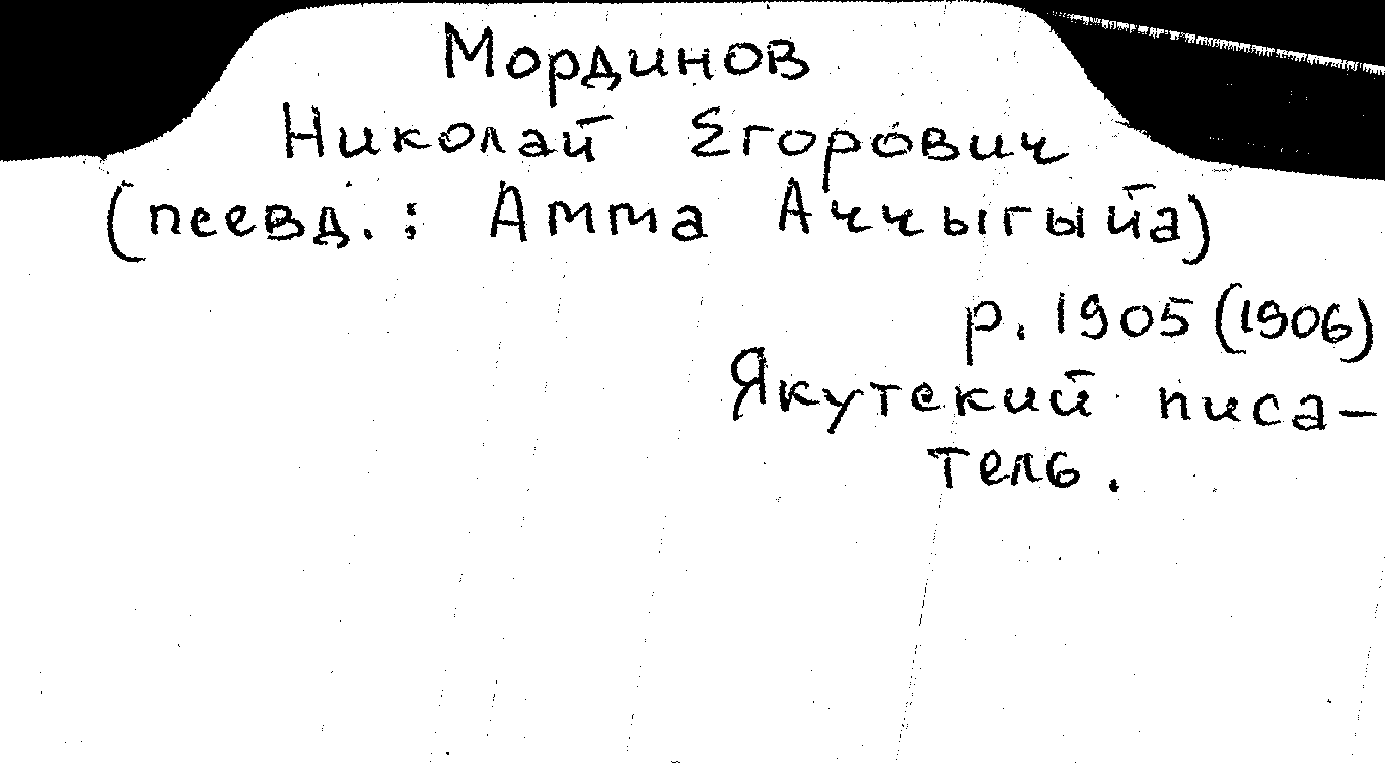 Мординов
Николай Егорович
(псевд.: Амма Аччыгыйа)
р. 1905 (1906)
Якутский писа-
тель.